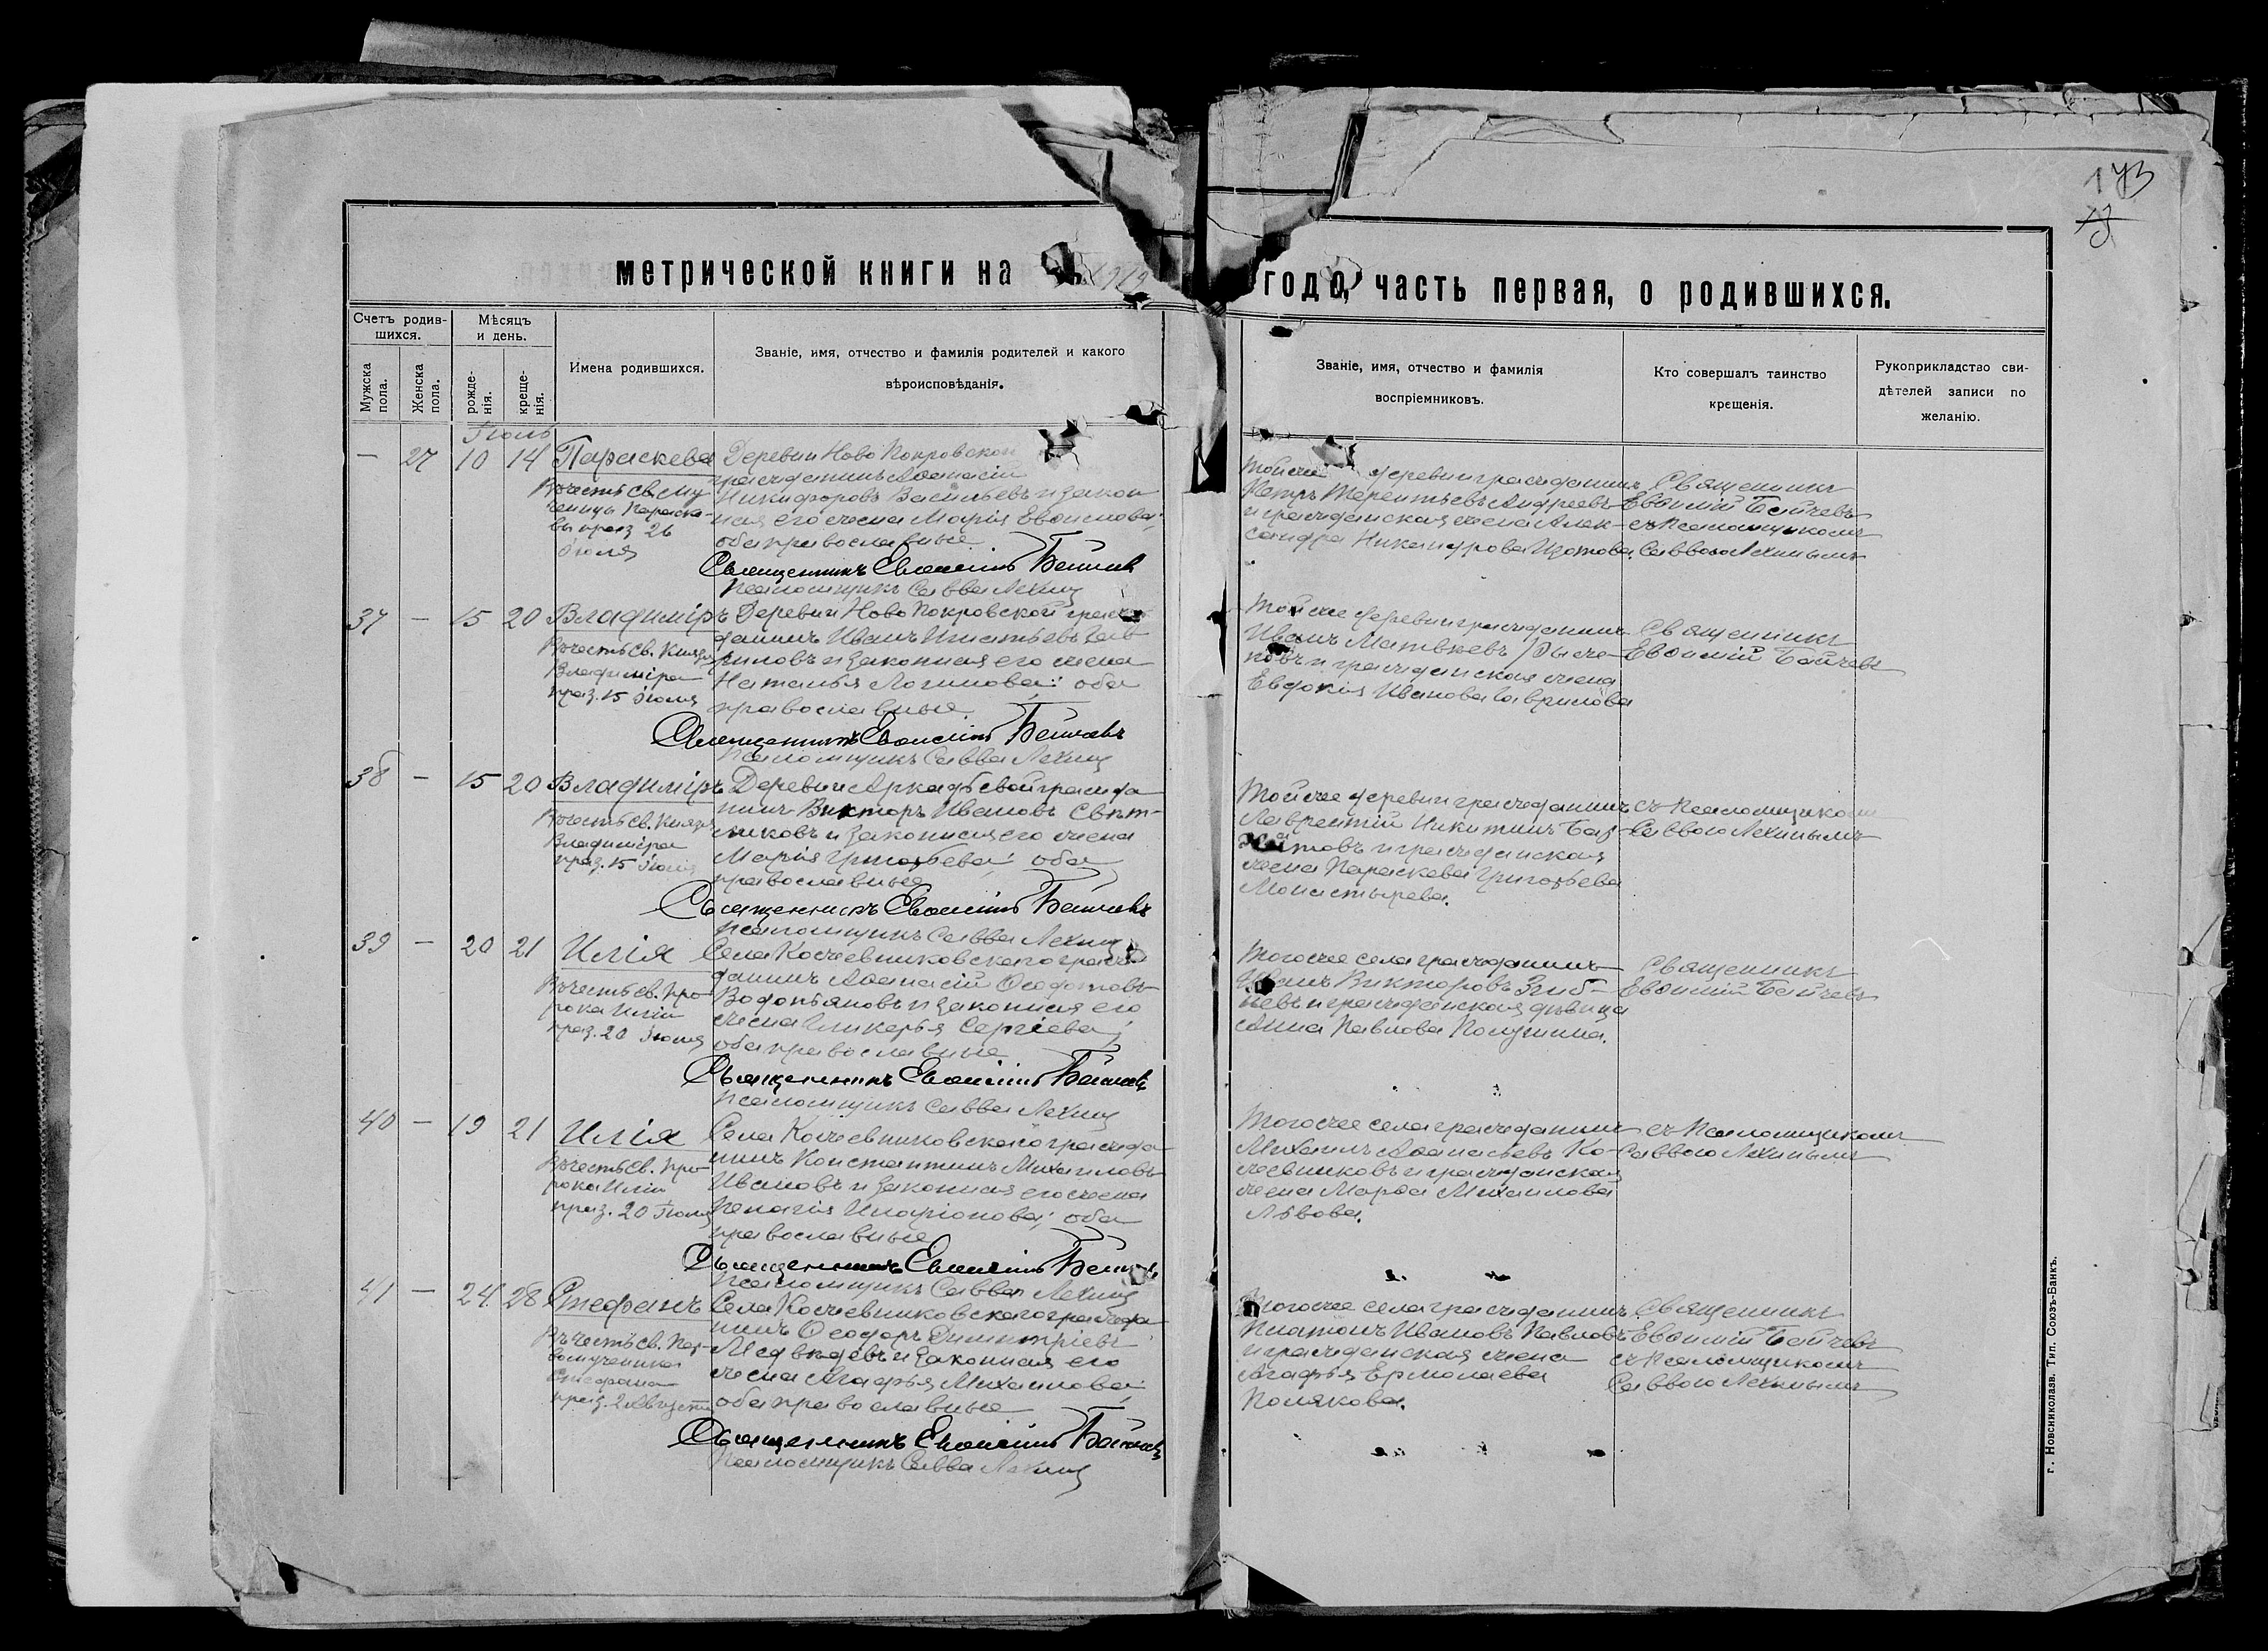 173
метрической книги на 1919 годъ, часть первая, о родившихся.
Счетъ родив-
шихся.
Мужска
пола.
Женска
пола.
Мѣсяцъ
и день.
рожде-
нія.
креще-
нія.
Имена родившихся.
Званіе, имя, отчество и фамилія родителей и какого
вѣроисповѣданія.
Званіе, имя, отчество и фамилія
воспріемниковъ.
Кто совершалъ таинство
крещенія.
Рукоприкладство сви-
дѣтелей записи по
желанію.
Іюль
— 27 10 14 Параскева
Въ честь св. му-
ченицы Параске-
вы праз. 26
Іюля
Деревни Ново Покровской
гражданинъ Аѳанасій
Никифоровъ Васильевъ и закон
ная его жена Марія Евѳимова;
оба православные
Священникъ Евѳимій
Псаломщикъ Савва Лехинъ
Той же деревни гражданинъ
Петръ Терентьевъ Андреевъ
и гражданская жена Алек-
сандра Никандрова Изотова.
Священникъ
Евѳимій
съ Псаломщикомъ
Саввою Лехинымъ
37 — 15 20 Владиміръ
Въ честь св. Князя
Владиміра
праз. 15 Іюля
Деревни Ново Покровской граж
данинъ Иванъ Игнатьевъ Гав
риловъ и законная его жена
Наталья Логинова; оба
православные
Священникъ Евѳимій
Псаломщикъ Савва Лехинъ
Той же деревни гражданинъ
Иванъ Матвѣевъ
и гражданская жена
Евдокія Иванова Гаврилова
Священникъ
Евѳимій
38 — 15 20 Владиміръ
Въ честь св. Князя
Владиміра
праз. 15 Іюля
Деревни Аркадьевой гражда
нинъ Викторъ Ивановъ Свѣт-
никовъ и законная его жена
Марія Григорьева; оба
православные
Священникъ Евѳимій
Псаломщикъ Савва Лехинъ
Той же деревни гражданинъ
Лаврентій Никитинъ
и гражданская
жена Параскева Григорьева
Монастырева.
съ Псаломщикомъ
Саввою Лехинымъ
39 — 20 21 Илія
Въ честь св. Про-
рока Иліи
праз. 20 Іюля
Села Кожевниковскаго граж
данинъ Аѳанасій Ѳедотовъ
Водопьяновъ и законная его
жена Гликерья Сергіева;
оба православные
Священникъ Евѳимій
Псаломщикъ Савва Лехинъ
Того же села гражданинъ
Иванъ Викторовъ
и гражданская дѣвица
Анна Павлова
Священникъ
Евѳимій
40 — 19 21 Илія
Въ честь св. Про-
рока Иліи
праз. 20 Іюля
Села Кожевниковскаго гражда
нинъ Константинъ Михаиловъ
Ивановъ и законная его жена
Пелагія Иларіонова; оба
православные
Священникъ Евѳимій
Псаломщикъ Савва Лехинъ
Того же села гражданинъ
Михаилъ Аѳанасьевъ Ко-
жевниковъ и гражданская
жена Марѳа Михаилова
Львова.
съ Псаломщикомъ
Саввою Лехинымъ
41 — 24 28 Стефанъ
Въ честь св. Пер-
вомученика
Стефана
праз. 2 Августа
Села Кожевниковскаго гражда
нинъ Ѳеодоръ Димитріевъ
Медвѣдевъ и законная его
жена Агафья Михаилова;
оба православные
Священникъ Евѳимій
Псаломщикъ Савва Лехинъ
Того же села гражданинъ
Платонъ Ивановъ Павловъ
и гражданская жена
Агафья Ермолаева
Полякова.
Священникъ
Евѳимій
съ Псаломщикомъ
Саввою Лехинымъ
г. Новониколаев. Тип. Союзъ-Банкъ.